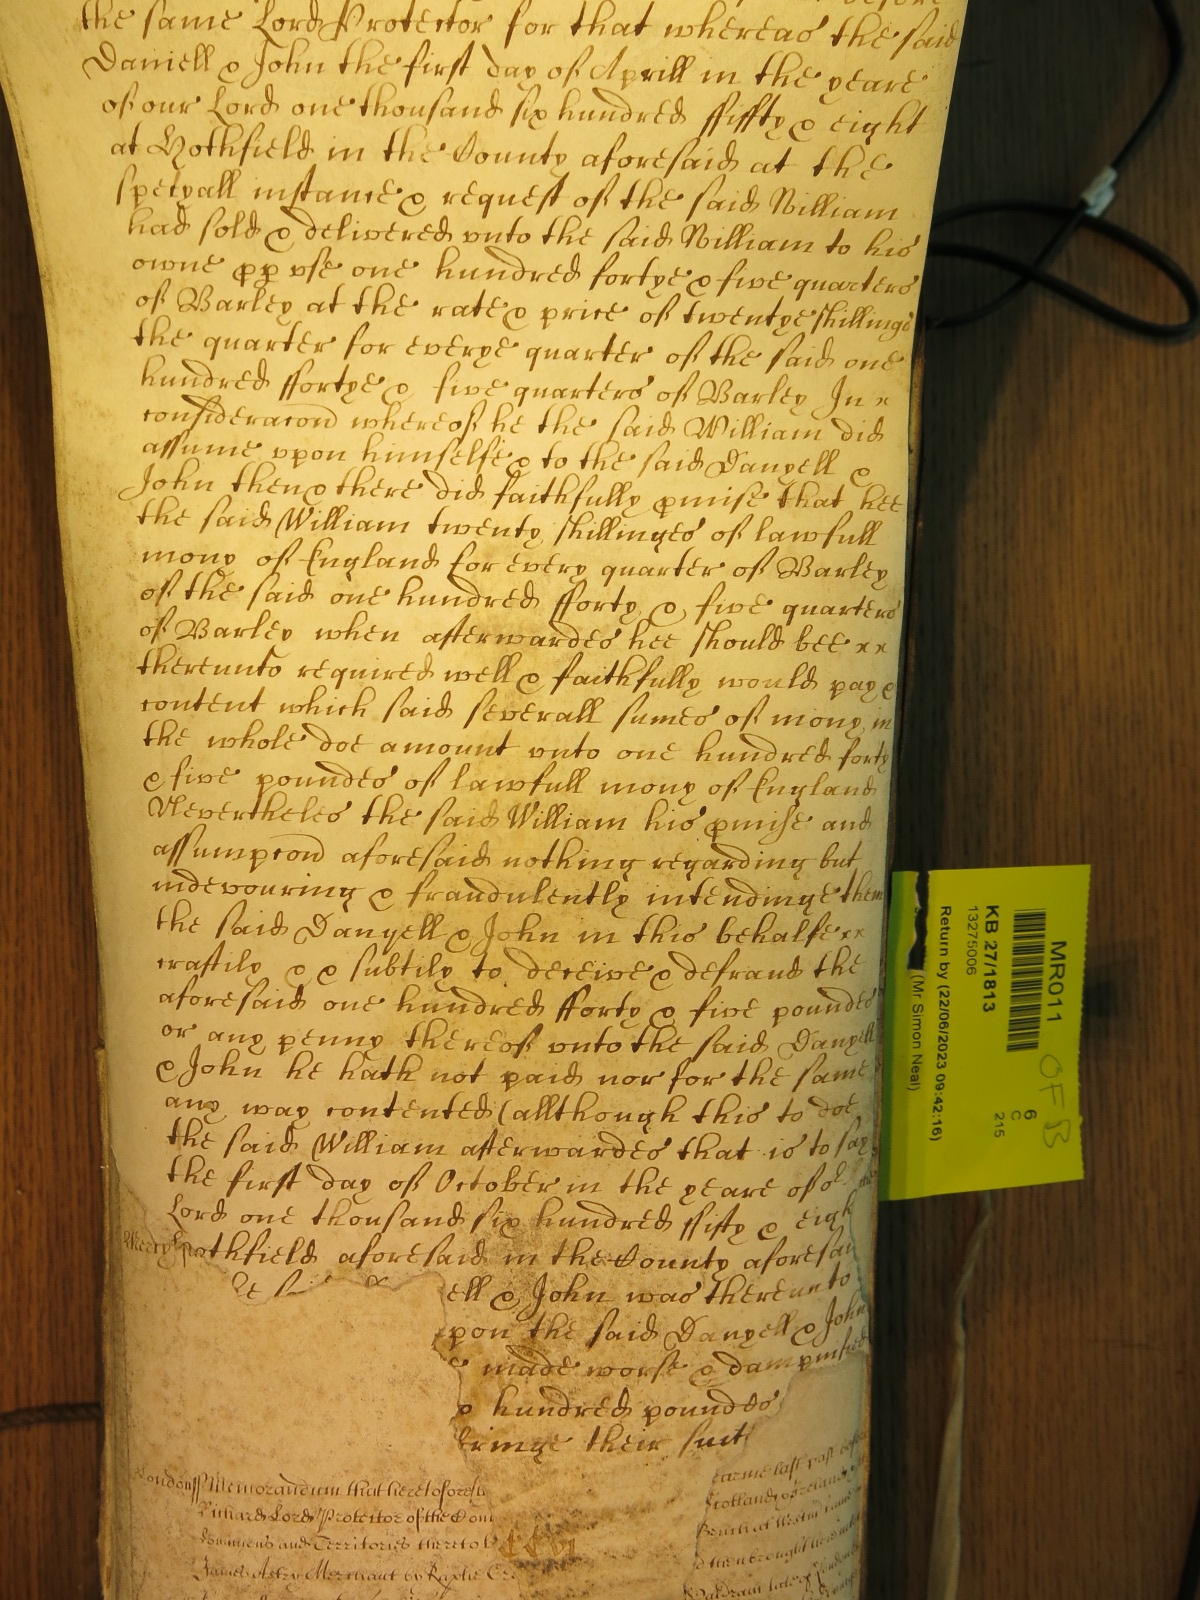 before
the same Lord Protector for that whereas the said
Daniell & John the first day of Aprill in the yeare
of our Lord one thousand six hundred ffiffty & eight
at Nothfield in the County aforesaid at the
spetyall instance & request of the said William
had sold & delivered vnto the said William to his
owne pp vse one hundred fortye & five quarters
of Barley at the rate & price of twentye shillings
the quarter for everye quarter of the said one
hundred ffortye & five quarters of Barley In
consideracon whereof he the said William did
assume vpon himselfe & to the said Danyell &
John then & there did faithfully pmise that hee
the said William twenty shillinges of lawfull
mony of England for every quarter of Barley
of the said one hundred fforty & five quarters
of Barley when afterwardes hee should bee
therevnto required well & faithfully would pay &
content which said severall sumes of mony in
the whole doe amount vnto one hundred forty
& five poundes of lawfull mony of England
Neverthelес the said William his pmise and
assumpcon aforesaid nothing regarding but
indevouring & fraudulently intendinge them
the said Danyell & John in this behalfe
craftily & & subtily to deceive & defraud the
aforesaid one hundred fforty & five poundes
or any penny thereof vnto the said Danyell
& John he hath not paid nor for the same
any way contented (allthough this to doe
the said William afterwardes that is to say
the first day of October in the yeare of o the
Lord one thousand six hundred ffifty & eigh
othfield aforesaid in the County aforesai
ell & John was therevnto
pon the said Danyell & John
made worse & dampnified
hundred poundes
bringe their suit
London ss Memorandum that heretofore
Richard Lord Protector of the Com
Dominions and Territories thereto b
James Merchant by
earme last past before
Scotland & Ireland
Bench at Westm
then brought
late of London
MR011
KB 27/1813
13275006
Return by (22/06/2023 09:42:16)
(Mr Simon Neal)
6
C
215
OFB